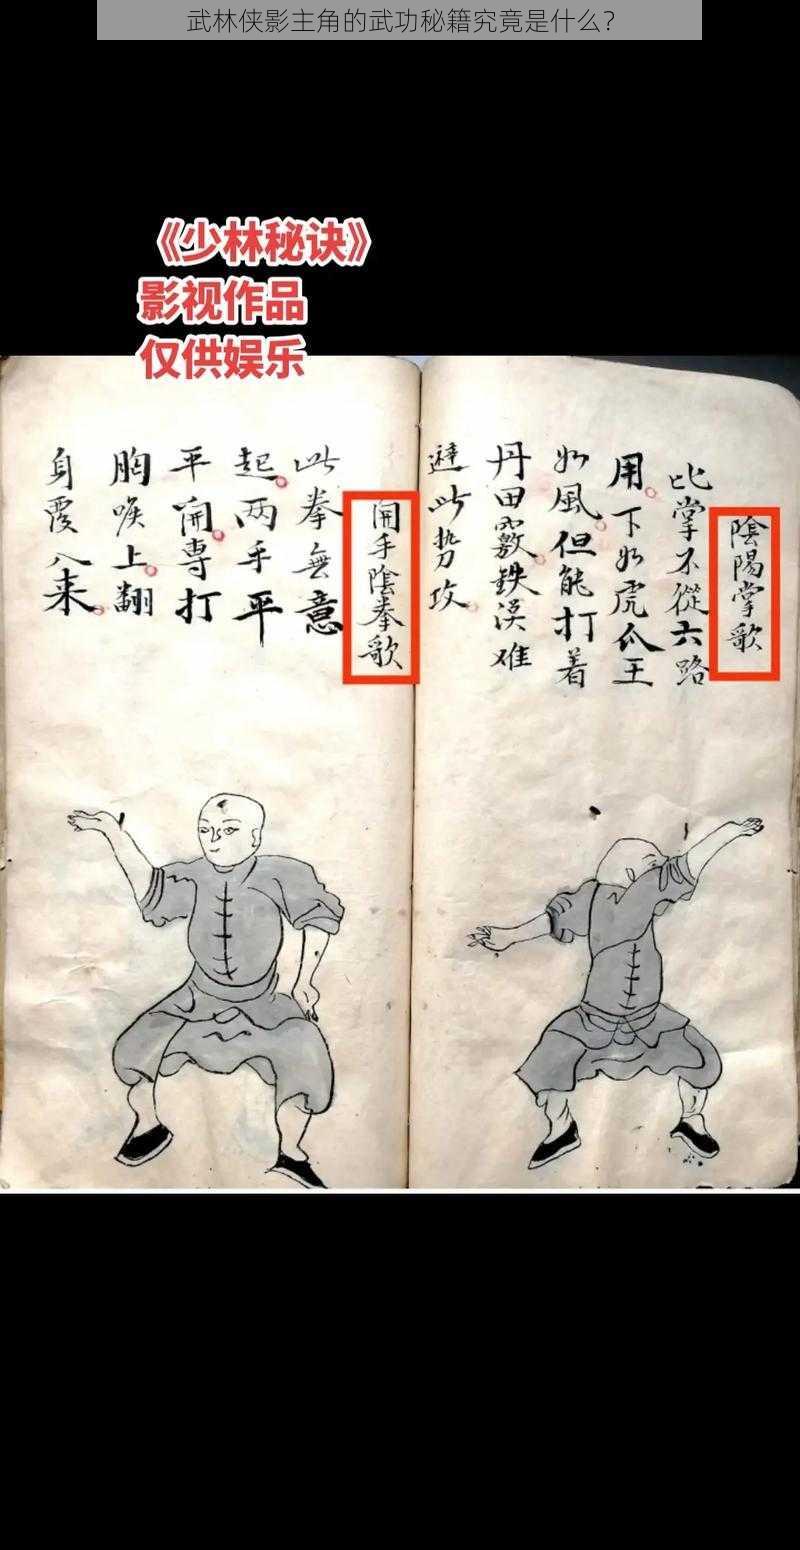 武林侠影主角的武功秘籍究竟是什么？
《少林秘诀》
影视作品
仅供娱乐
陰陽掌歌
此掌不從六路
用下如虎爪王
如風但能打着
丹田竅鉄漢难
避此势攻
開手陰拳歌
此拳無意
起两手平
平開專打
胸喉上翻
身覆入来